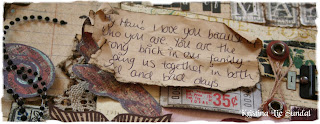 Hani I love you because
who you are. You are the
and brick in our family
going us together in both
and bad days
35¢
Kristina Hjc Sundal